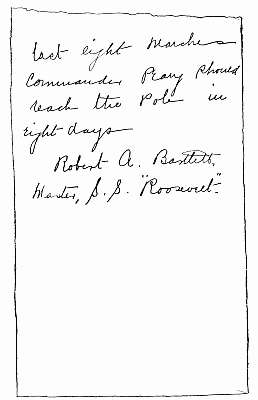 last eight marches
Commander Peary should
reach the Pole in
eight days
Robert A. Bartlett,
Master, S.S. "Roosevelt".